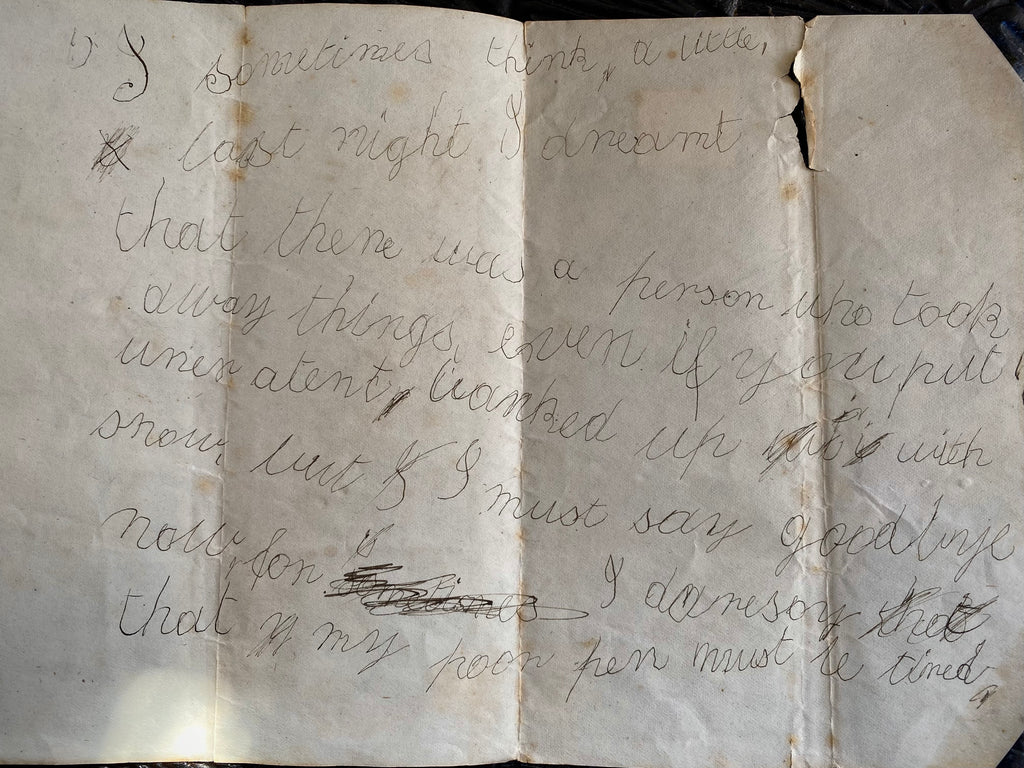 I sometimes think, a little,
last night I dreamt
that there was a person who took
away things, even if you put
a tent, banked up with
snow, but I must say goodbye
now, for I daresay
that my poor pen must be tired,